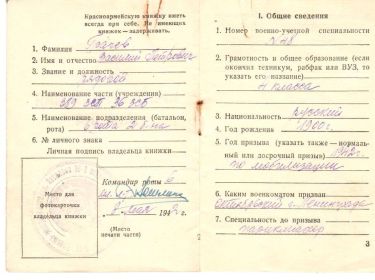 Красноармейскую книжку иметь
всегда при себе. Не имеющих
книжек — задерживать.
1. Фамилия
2. Имя и отчество Василий Петрович
3. Звание и должность
рядовой
4. Наименование части (учреждения)
389 зсп 36 зсб
5. Наименование подразделения (батальон,
рота)
6. № личного знака
Личная подпись владельца книжки
Место для
фотокарточки
владельца книжки
Командир роты
мая 194 г.
(Место
печати части)
I. Общие сведения
1. Номер военно-учетной специальности
№
2. Грамотность и общее образование (если
окончил техникум, рабфак или ВУЗ, то
указать его название)
4 класса
3. Национальность русский
4. Год рождения 1900 г.
5. Год призыва (указать также — нормаль-
ный или досрочный призыв)
по мобилизации
6. Каким военкоматом призван
г. Ленинграда
7. Специальность до призыва
парикмахер
3